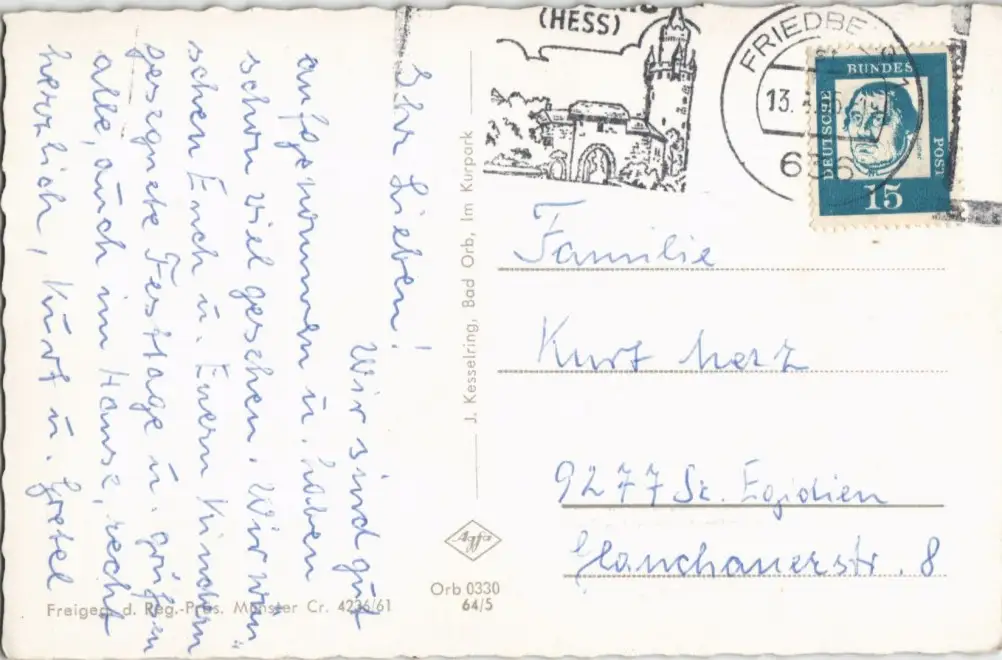 Ihr Lieben!
Wir sind gut
angekommen u. haben
schon viel gesehen. Wir wün-
schen Euch u. Euern Kindern
gesegnete Festtage u. grüßen
alle, auch im Hause, recht
herzlich, Kurt u. Gretel
J. Kesselring, Bad Orb, Im Kurpark
Freigeg. d. Reg.-Präs. Münster Cr. 4236/61
Agfa
Orb 0330
64/5
(HESS)
FRIEDBE
13.
636
DEUTSCHE
BUNDES
POST
15
Familie
Kurt Merz
9277 St. Egidien
Glauchauerstr. 8